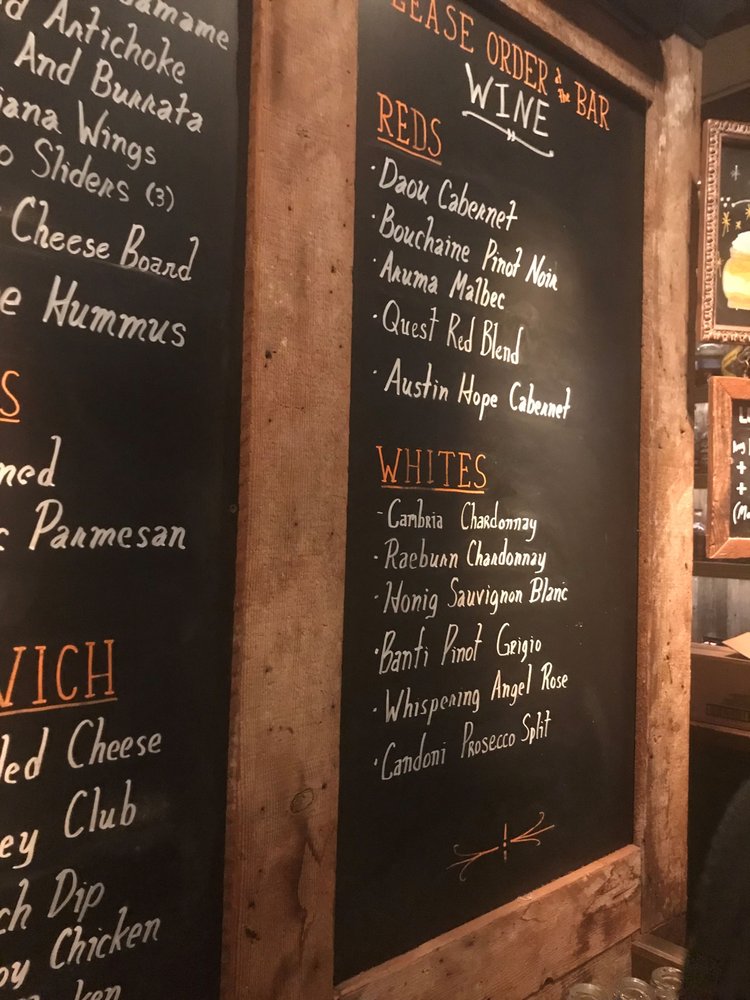 Antichoke
And Burrata
Wings
Sliders (3)
Cheese Board
Hummus
Parmesan
Cheese
Club
Dip
Chicken
ORDER at the BAR
WINE
REDS
· Daou Cabernet
· Bouchaine Pinot Noir
· Aruma Malbec
· Quest Red Blend
· Austin Hope Cabernet
WHITES
- Cambria Chardonnay
· Raeburn Chardonnay
· Honig Sauvignon Blanc
· Banfi Pinot Grigio
· Whispering Angel Rose
· Candoni Prosecco Split